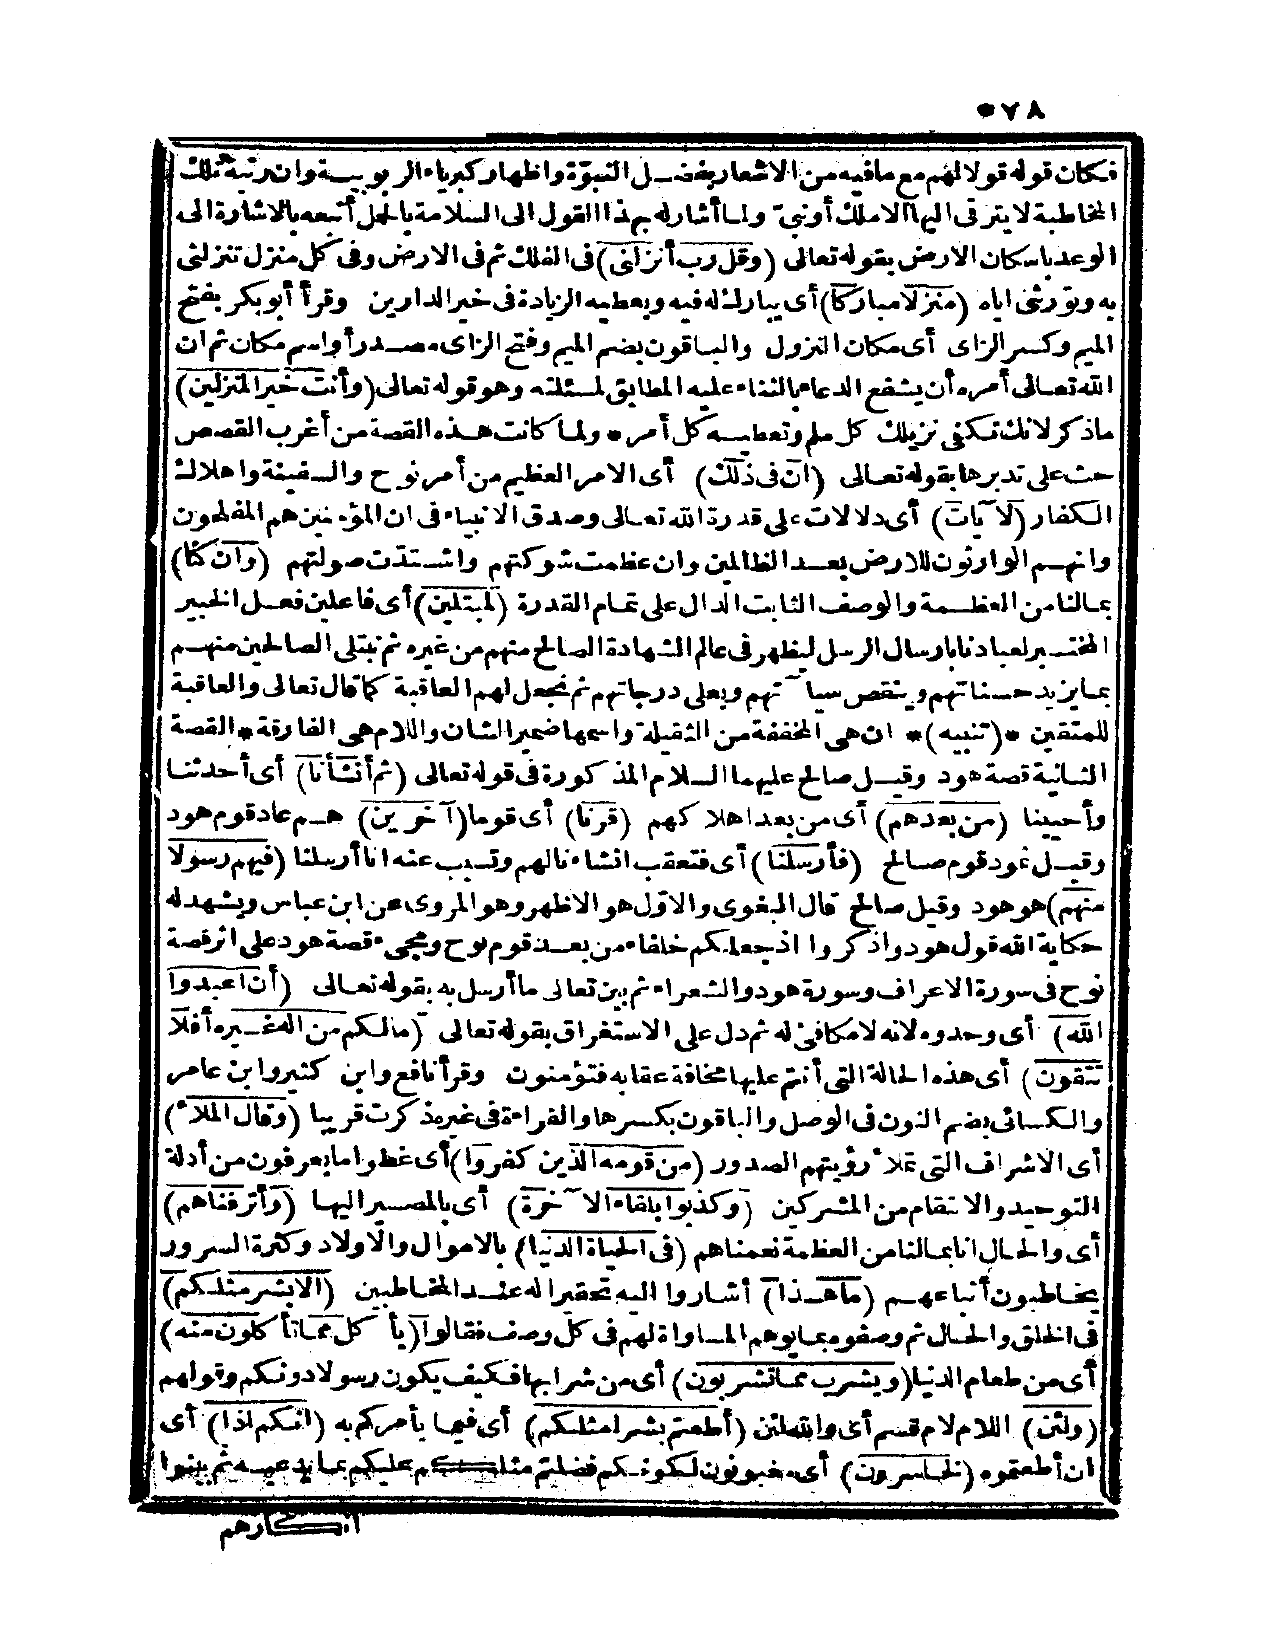 ٥٧٨
فكان قوله قولا لهم مع ما فيه من الاشعار بفضل النبوّة واظهار كبرياء الربوبية وان رتبة تلك
المخاطبة لا يترقى اليها الا ملك أو نبيّ ولما أشار له بهذا القول الى السلامة بالحمل أتبعه بالاشارة الى
الوعد باسكان الارض بقوله تعالى (وقل رب أنزلني) في الفلك ثم في الارض وفي كل منزل تنزلني
به وتورثني اياه (منزلا مباركا) أي يبارك له فيه ويعطيه الزيادة في خير الدارين وقرأ أبو بكر بفتح
الميم وكسر الزاي أي مكان النزول والباقون بضم الميم وفتح الزاي مصدر أو اسم مكان ثم ان
الله تعالى أمره أن يشفع الدعاء بالثناء عليه المطابق لمسئلته وهو قوله تعالى (وأنت خير المنزلين)
ما ذكر لانك تكفي نزيلك كل ملم وتعطيه كل أمر * ولما كانت هذه القصة من أغرب القصص
حث على تدبرها بقوله تعالى (ان في ذلك) أي الامر العظيم من أمر نوح والسفينة واهلاك
الكفار (لآيات) أي دلالات على قدرة الله تعالى وصدق الانبياء في ان المؤمنين هم المفلحون
وانهم الوارثون للارض بعد الظالمين وان عظمت شوكتهم واشتدّت صولتهم (وان كنا)
بمالنا من العظمة والوصف الثابت الدال على تمام القدرة (لمبتلين) أي فاعلين فعل الخبير
المختبر لعبادنا بارسال الرسل ليظهر في عالم الشهادة الصالح منهم من غيره ثم نبتلي الصالحين منهم
بما يزيد حسناتهم وينقص سيآتهم ويعلي درجاتهم ثم نجعل لهم العاقبة كما قال تعالى والعاقبة
للمتقين *(تنبيه)* ان هي المخففة من الثقيلة واسمها ضمير الشان واللام هي الفارقة * القصة
الثانية قصة هود وقيل صالح عليهما السلام المذكورة في قوله تعالى (ثم أنشأنا) أي أحدثنا
وأحيينا (من بعدهم) أي من بعد اهلاكهم (قرنا) أي قوما (آخرين) هم عاد قوم هود
وقيل ثمود قوم صالح (فأرسلنا) أي فتعقب انشاءنا لهم وتسبب عنه انا أرسلنا (فيهم رسولا
منهم) هو هود وقيل صالح قال البغوي والاوّل هو الاظهر وهو المروي عن ابن عباس ويشهد له
حكاية الله قول هود واذكروا اذ جعلكم خلفاء من بعد قوم نوح ومجيء قصة هود على اثر قصة
نوح في سورة الاعراف وسورة هود والشعراء ثم بين تعالى ما أرسل به بقوله تعالى (أن اعبدوا
الله) أي وحدوه لانه لا مكافئ له ثم دل على الاستغراق بقوله تعالى (ما لكم من اله غيره أفلا
تتقون) أي هذه الحالة التي أنتم عليها مخافة عقابه فتؤمنون وقرأ نافع وابن كثير وابن عامر
والكسائي بضم النون في الوصل والباقون بكسرها والقراءة في غيره ذكرت قريبا (وقال الملأ)
أي الاشراف التي تملأ رؤيتهم الصدور (من قومه الذين كفروا) أي غطوا ما يعرفون من أدلة
التوحيد والانتقام من المشركين (وكذبوا بلقاء الآخرة) أي بالمصير اليها (وأترفناهم)
أي والحال انا بمالنا من العظمة نعمناهم (في الحياة الدنيا) بالاموال والاولاد وكثرة السرور
يخاطبون أتباعهم (ما هذا) أشاروا اليه تحقيرا له عند المخاطبين (الا بشر مثلكم)
في الخلق والحال ثم وصفوه بما يوهم المساواة لهم في كل وصف فقالوا (يأكل مما تأكلون منه)
أي من طعام الدنيا (ويشرب مما تشربون) أي من شرابها فكيف يكون رسولا دونكم وقولهم
(ولئن) اللام لام قسم أي والله لئن (أطعتم بشرا مثلكم) أي فيما يأمركم به (انكم اذا) أي
ان أطعتموه (لخاسرون) أي مغبونون لكونكم فضلتم مثلكم عليكم بما يدعيه ثم بينوا
انكارهم